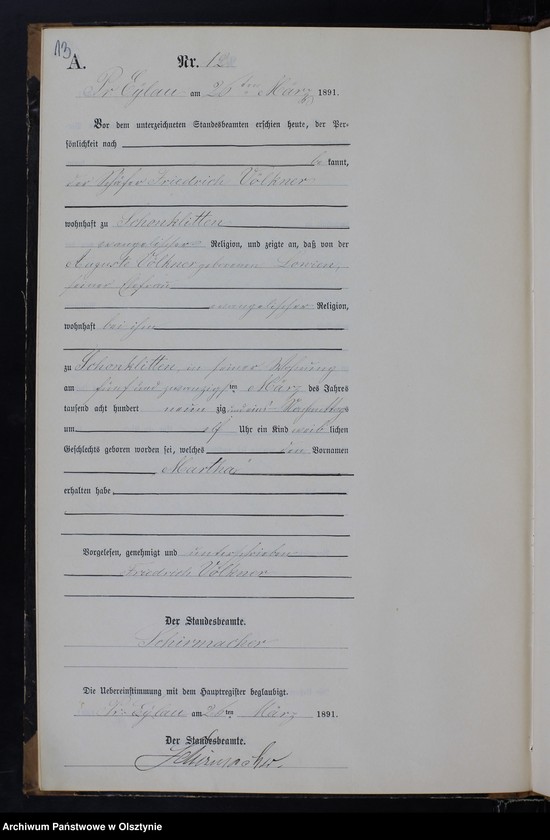 13
A. Nr. 128
Pr. Eylau am 26ten März 1891.
Vor dem unterzeichneten Standesbeamten erschien heute, der Per-
sönlichkeit nach
be kannt,
der Schäfer Friedrich Völkner
wohnhaft zu Schönklitten
evangelischer Religion, und zeigte an, daß von der
Auguste Völkner geborenen Lowien,
seiner Ehefrau
evangelischer Religion,
wohnhaft bei ihm
zu Schönklitten, in seiner Wohnung
am fünfundzwanzigsten März des Jahres
tausend acht hundert neunzig, Vormittags
um elf Uhr ein Kind weiblichen
Geschlechts geboren worden sei, welches den Vornamen
Martha
erhalten habe,
Vorgelesen, genehmigt und unterschrieben
Friedrich Völkner
Der Standesbeamte.
Schirmacher
Die Uebereinstimmung mit dem Hauptregister beglaubigt.
Pr. Eylau am 26ten März 1891.
Der Standesbeamte.
Schirmacher.
Archiwum Państwowe w Olsztynie